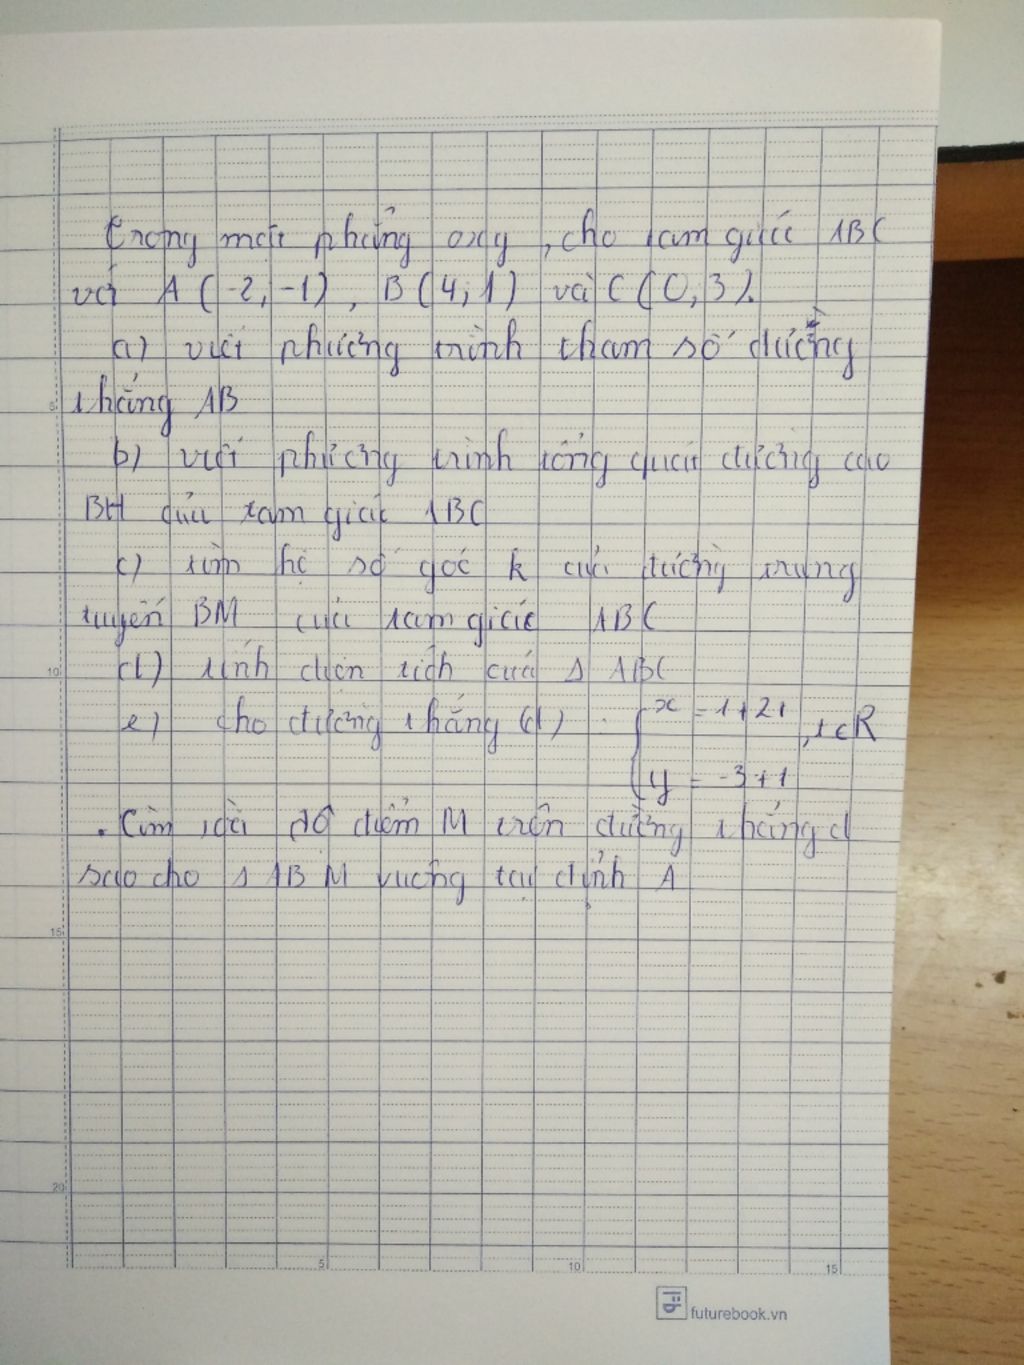 Trong mặt phẳng oxy, cho tam giác ABC
với A (-2, -1), B (4, 1) và C (0, 3).
a) viết phương trình tham số đường
thẳng AB
b) viết phương trình tổng quát đường cao
BH của tam giác ABC
c) tìm hệ số góc k của đường trung
tuyến BM của tam giác ABC
d) tính diện tích của Δ ABC
e) cho đường thẳng (d) : { x = 1 + 2t
, t ∈ R
y = -3 + t
. Tìm tọa độ điểm M trên đường thẳng d
sao cho Δ ABM vuông tại đỉnh A
5
10
15
20
5
10
15
futurebook.vn